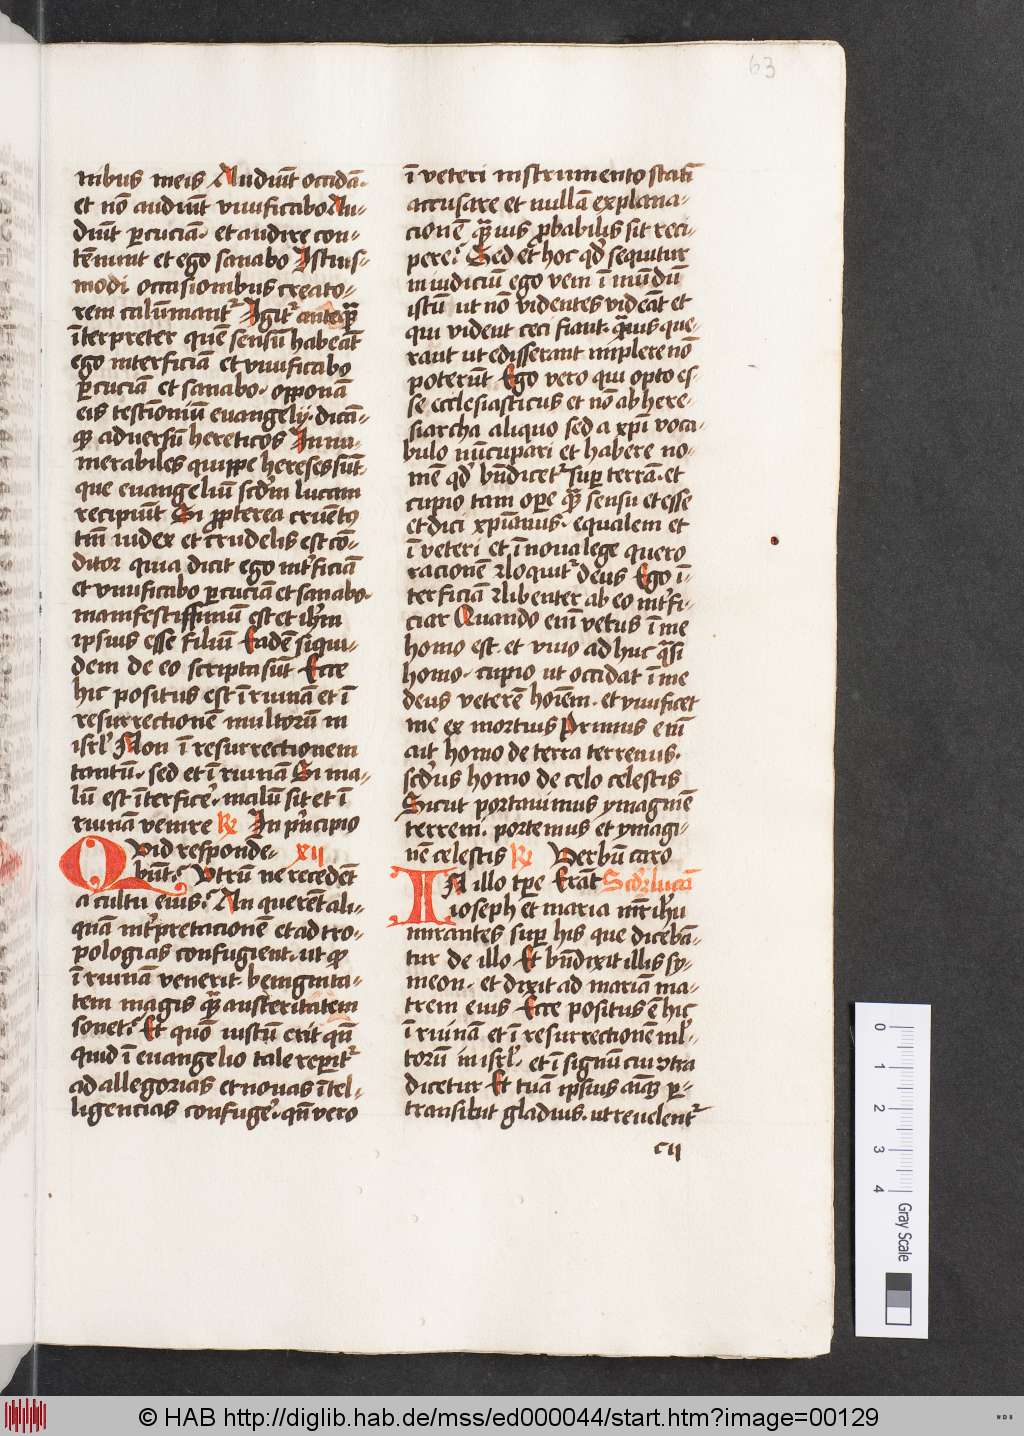 63
nibus meis Audiūt occidā·
et nō audiūt viuificabo Au-
diūt ꝑcuciā· et audire con-
tēnūt et ego sanabo Istius-
modi occasionibus creato-
rem calūmant᷑ Igit᷑ anteqꝫ̄
īterpreter quē sensū habeāt
ego interficiā et viuificabo
ꝑcuciā et sanabo· opponā
eis testimoniū euangelij· dicā-
qꝫ aduersū hereticos Innu-
merabiles quippe hereses sūt
que euangeliū scd̄m lucam
recipiūt Si ꝓpterea cruētꝰ
tm̄ iudex et crudelis est cō-
ditor quia dicit ego int᷑ficiā
et viuificabo ꝑcuciā et sanabo·
manifestissimū est et ih̄m
ipsius esse filiū Eadē siqui-
dem de eo scripta sūt Ecce
hic positus est ī ruinā et ī
resurrectionē multorū in
isrl̄ Non ī resurrectionem
tantū· sed et ī ruinā Si ma-
lū est īterfice᷑· malū sit et ī
ruinā venire Re In pͥncipio
Qvid respondē- xij
būt? Vtrū ne recedēt
a cultu eius? An querēt ali-
quā int᷑pretacionē et ad tro-
pologias confugient· ut qͦ
ī ruinā venerit· benignita-
tem magis qꝫ̄ austeritatem
sonet? Et quō iustū erit qn̄
quid ī euangelio tale reperit᷑
ad allegorias et nouas ītel-
ligencias confuge᷑· qn̄ vero
ī veteri instrumento statī
accusare et nullā explana-
cionē qꝫ̄uis ꝓbabilis sit reci-
pere? Sed et hoc qd̄ sequitur
in iudiciū ego veni ī mūdū
istū ut nō videntes videāt et
qui vident ceci fiant· qꝫ̄uis que-
rant ut edisserant implere nō
poterūt Ego vero qui opto es-
se ecclesiasticus et nō ab here-
siarcha aliquo sed a xp̄i voca-
bulo nūcupari et habere no-
mē qd̄ bn̄dicet᷑ suꝑ terrā· et
cupio tam oꝑe qꝫ̄ sensu et esse
et dici xp̄ianus· equalem et
ī veteri et ī noua lege quero
racionē ⁊ loquit᷑ deus Ego ī-
terficiā ⁊ libenter ab eo int᷑fi-
ciar Quando enī vetus ī me
homo est· et viuo adhuc qͣsi
homo· cupio ut occidat ī me
deus veterē hoīem· et viuificet
me ex mortuis Primus enī
ait homo de terra terrenus·
scd̄us homo de celo celestis
Sicut portauimus ymaginē
terreni· portemus et ymagi-
nē celestis Re Verbū caro
IN illo tꝑe Erāt Scd̄ꝫ lucā
ioseph et maria mr̄ ih̄u
mirantes suꝑ his que dicebā-
tur de illo Et bn̄dixit illis sy-
meon· et dixit ad mariā ma-
trem eius Ecce positus ē hic
ī ruinā et ī resurrectionē ml̄-
torū in isrl̄· et ī signū cui ꝯtra
dicetur Et tuā ipsius aīaꝫ ꝑ-
transibit gladius· ut reuelent᷑
cij
0
1
2
3
4
Gray Scale
© HAB http://diglib.hab.de/mss/ed000044/start.htm?image=00129